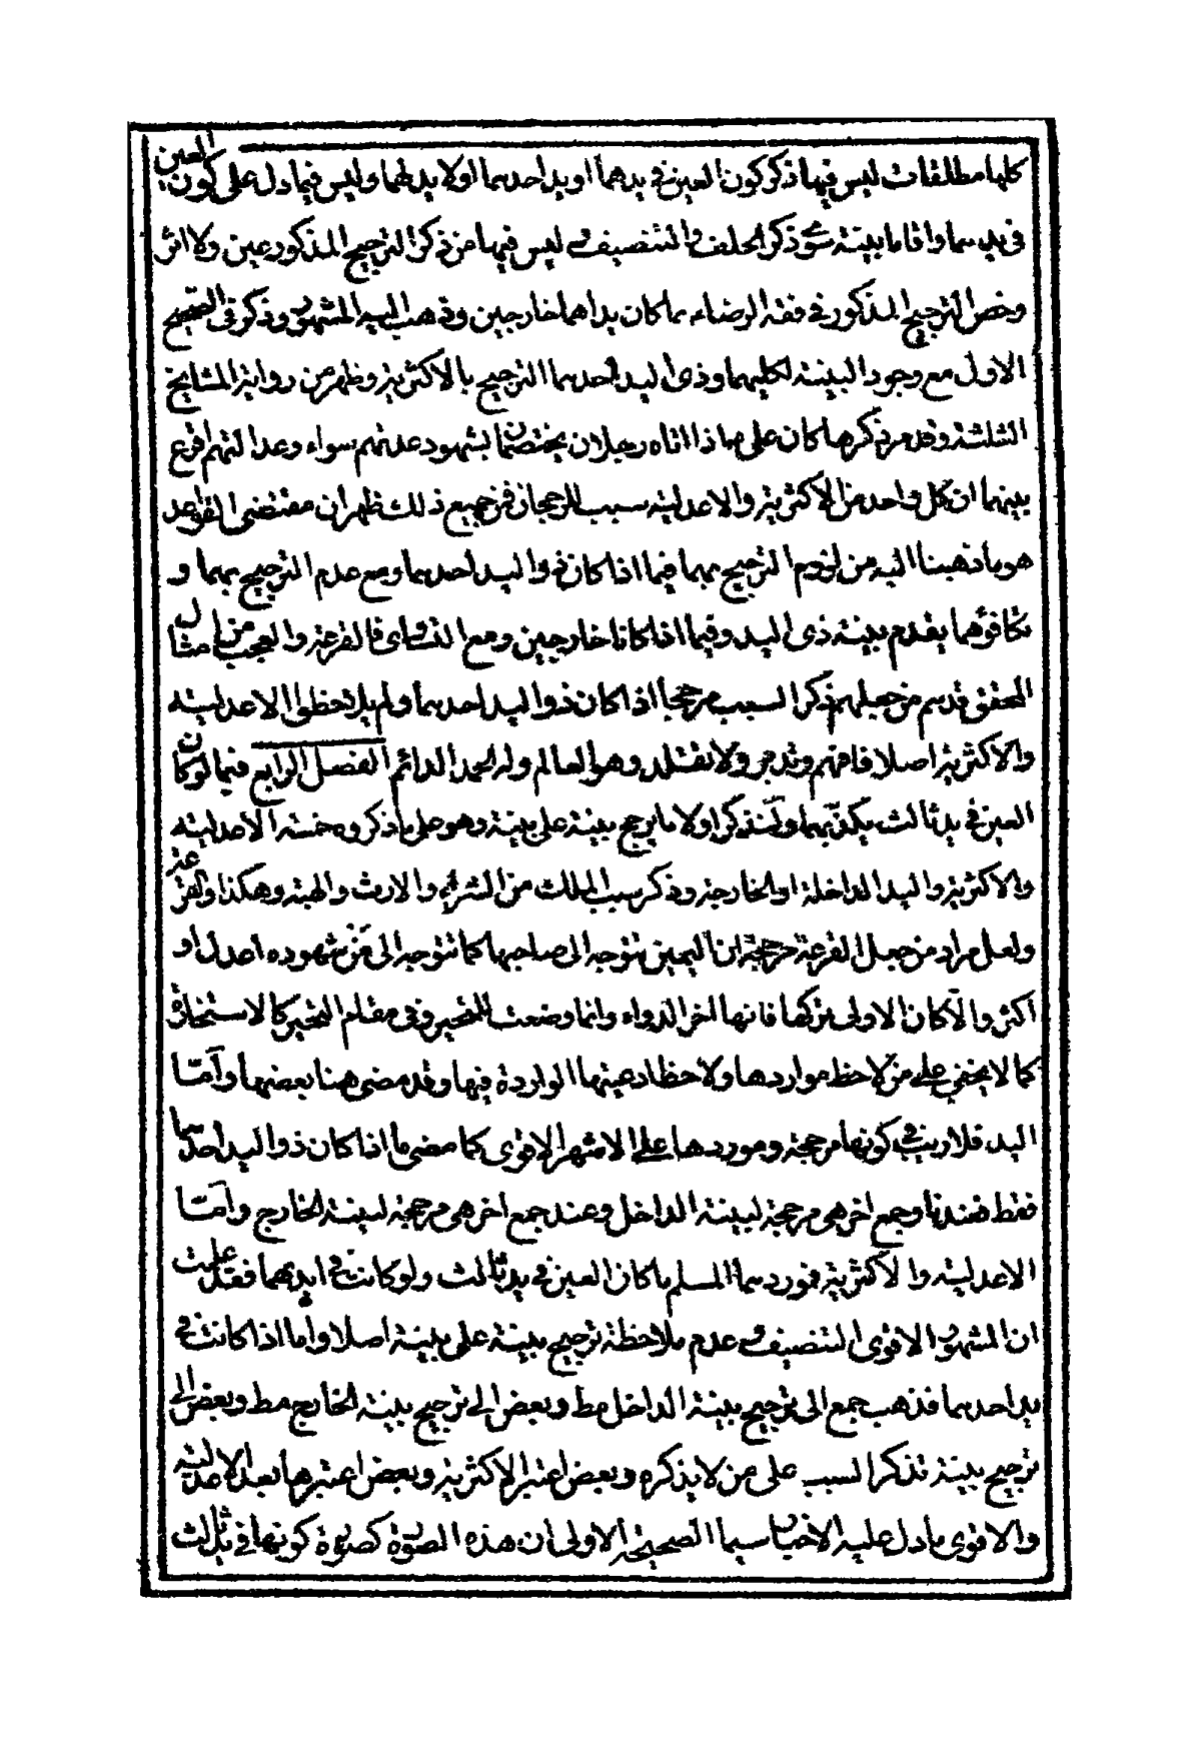 كلها مطلقات ليس فيها ذكر كون العين في يدهما او يد احدهما او لا يد لهما وليس فيما دل على كون العين
في يدهما واقاما بينة سوى ذكر الحلف والتنصيف في ليس فيها من ذكر الترجيح المذكور عين ولا اثر
وخص الترجيح المذكور في فقه الرضاء بما كان يداهما خارجين وذهب اليه المشهور وذكر في الصحيح
الاول مع وجود البينة لكليهما وذي اليد احدهما الترجيح بالاكثرية وظهر من رواية المشايخ
الثلثة وقد مر ذكرها كان علي ع اذا اتاه رجلان يختصمان بشهود عدتهم سواء وعدالتهم اقرع
بينهما ان كل واحد من الاكثرية والاعدلية سبب للرجحان فمن جميع ذلك ظهر أن مقتضى القواعد
هو ما ذهبنا اليه من لزوم الترجيح بهما فيما اذا كان ذو اليد احدهما ومع عدم الترجيح بهما و
تكافؤهما يقدم بينة ذي اليد وفيما اذا كانا خارجين ومع التساوى فالقرعة والعجب من امثال
المحقق قدسهم من جعلهم ذكر السبب مرجحا اذا كان ذو اليد احدهما ولم يلاحظوا الاعدلية
والاكثرية اصلا فافهم وتدبر ولا تقتلد وهو العالم وله الحمد الدائم الفصل الرابع فيما لو كان
العين في يد ثالث يكذبهما ولنذكر اولا ما يرجح بينة على بينة وهو على ما ذكروه خمسة الاعدلية
والاكثرية واليد الداخلة او الخارجة وذكر سبب الملك من الشراء والارث والهبة وهكذا والقرعة
ولعل مراد من جعل القرعة مرجحة ان اليمين تتوجه الى صاحبها كما تتوجه الى من شهوده اعدل او
اكثر والا كان الاولى تركها فانها اخر الدواء وانما وضعت للمتحير وفي مقام التحير كالاستخارة
كما لا يخفى على من لاحظ مواردها ولاحظ ادعيتها الواردة فيها وقد مضى هنا بعضها واما
اليد فلا ريب في كونها مرجحة وموردها على الاشهر الاقوى كما مضى ما اذا كان ذو اليد احدهما
فقط فعندنا وجمع اخر هي مرجحة لبينة الداخل وعند جمع اخر هي مرجحة لبينة الخارج واما
الاعدلية والاكثرية فموردهما المسلم ما كان العين في يد ثالث ولو كانت في ايديهما فقد علمت
ان المشهور الاقوى التنصيف في عدم ملاحظة ترجيح بينة على بينة اصلا واما اذا كانت في
يد احدهما فذهب جمع الى ترجيح بينة الداخل مط وبعض الى ترجيح بينة الخارج مط وبعض الى
ترجيح بينة تذكر السبب على من لا يذكره وبعض اعتبر الاكثرية وبعض اعتبرها بعد الاعدلية
والاقوى ما دل عليه الاخبار سيما الصحيحة الاولى ان هذه الصورة كصورة كونها في يد ثالث